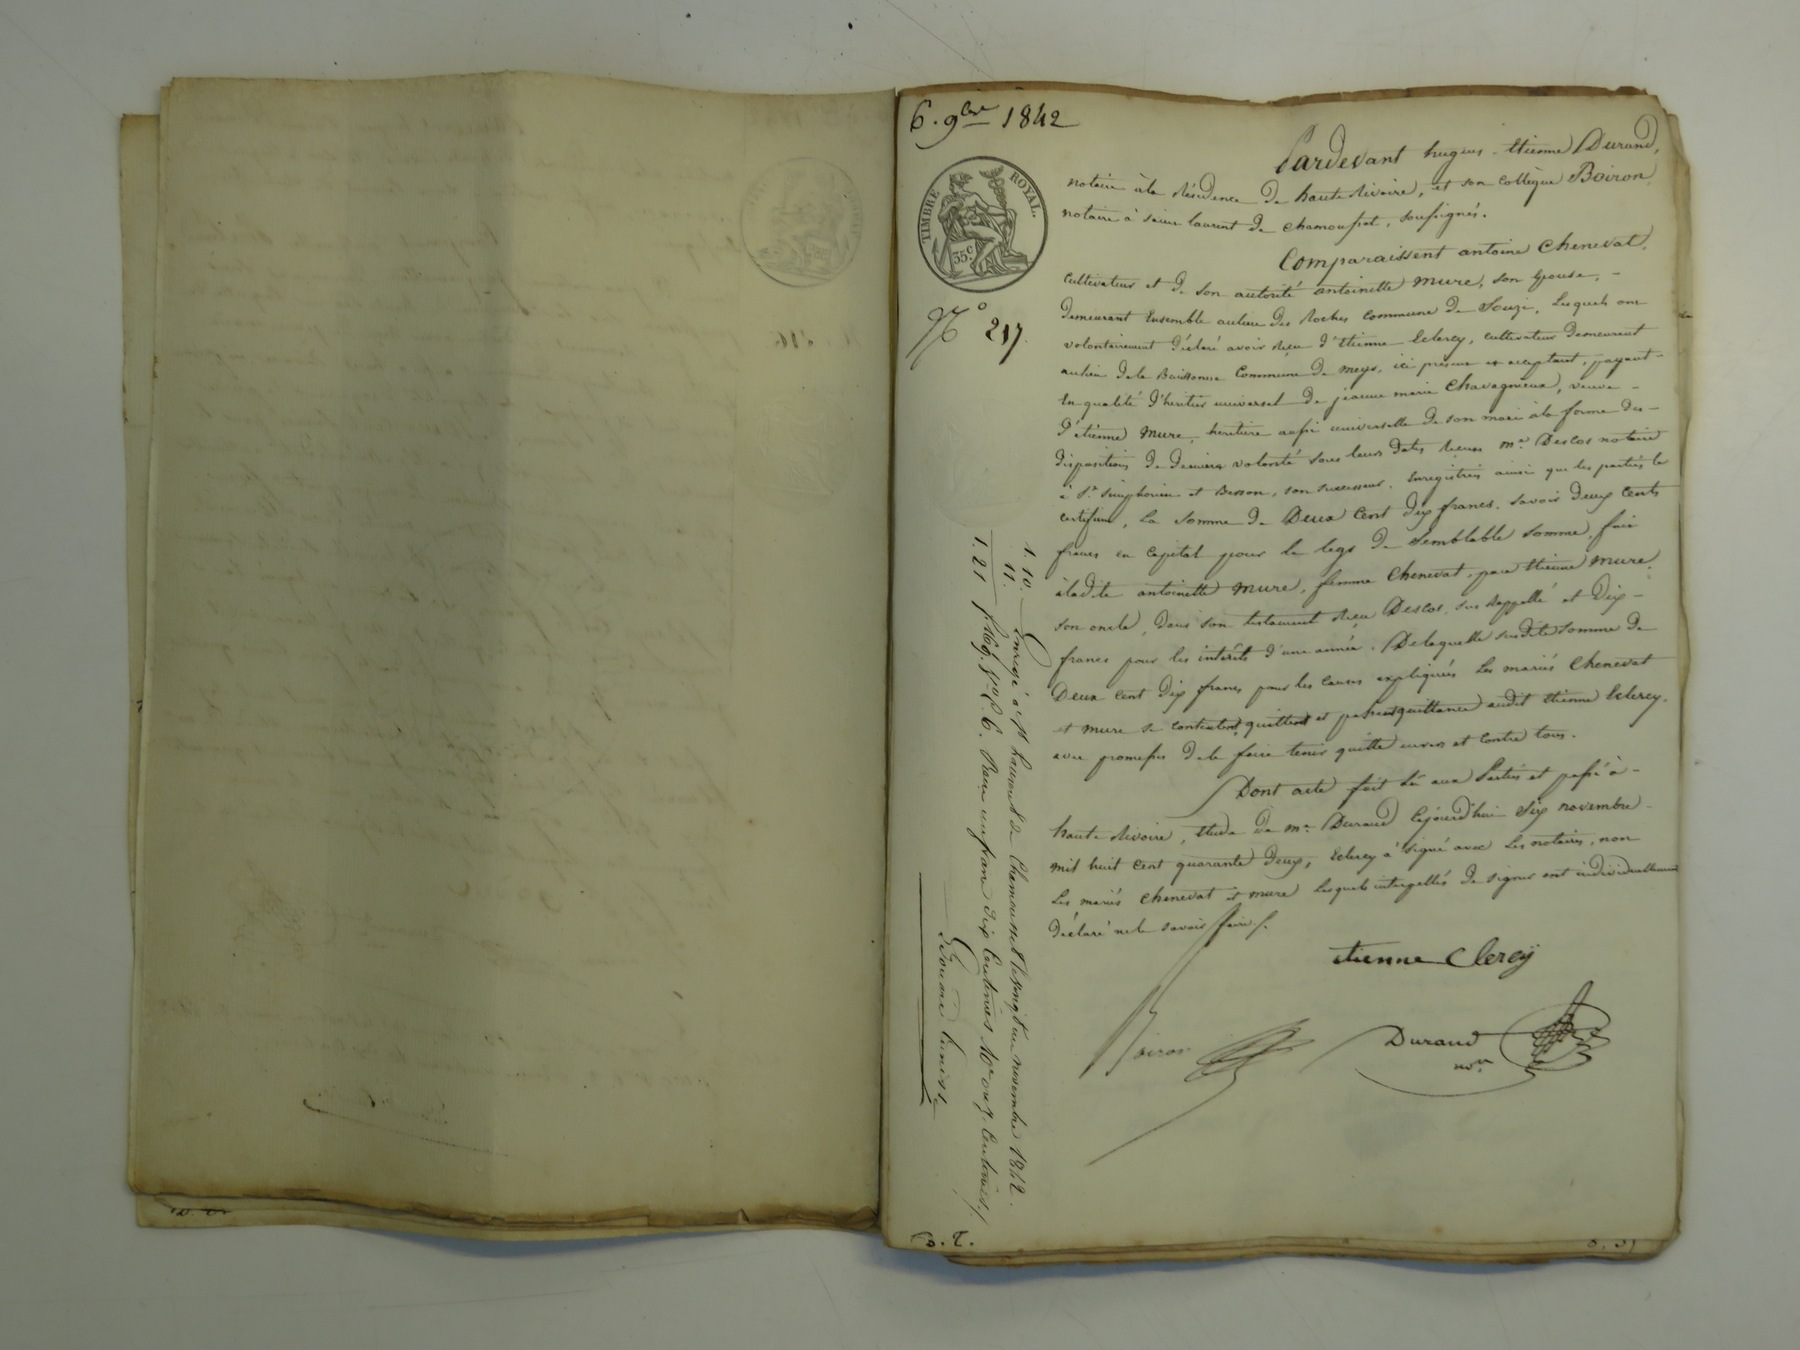 6. 9bre 1842
TIMBRE ROYAL.
35.c
No 217.
Pardevant hugues-Etienne Durand,
notaire à la Résidence de haute Rivoire, et son collègue Boiron
notaire à saint laurent de chamousset, soussignés.
Comparaissent antoine Chenevat,
cultivateur et de son autorité antoinette mure, son épouse,
demeurant Ensemble au lieu des Roches commune de Souzi, lesquels ont
volontairement déclaré avoir reçu d'Etienne Eclercy, cultivateur demeurant
au lieu de la Buissonne Commune de meys, ici présent et acceptant, payant
En qualité d'heritier universel de jeanne marie Chavagnieux, veuve
d'étienne mure, heritière aussi universelle de son mari à la forme des
dispositions de dernière volonté sous leurs dates reçues me. Descos notaire
à St. simphorien et Besson, son successeur. Enregistrées ainsi que les parties le
certifient, la somme de Deux Cent dix francs. savoir deux Cents
francs en capital pour le legs de semblable somme, fait
à ladite antoinette mure, femme Chenevat, par Etienne mure,
son oncle, dans son testament reçu Descos, sus rappellé et dix
francs pour les intérêts d'une année. De laquelle susdite somme de
Deux cent dix francs pour les causes expliquées Les mariés Chenevat
et mure se contentent, quittent et passent quittance audit Etienne Eclercy,
avec promesse de le faire tenir quitte envers et contre tous.
Dont acte fait Lu aux Parties et passé à
haute Rivoire, Etude de me. Durand Cejourd'hui six novembre
mil huit cent quarante deux, Eclercy à signé avec Les notaires, non
Les mariés chenevat et mure lesquels interpellés de signer ont individuellement
déclaré ne le savoir faire./.
Etienne Clercÿ
Boiron
Durand
nore
1. 10.
11.
1. 21
Enregé à St Laurent de Chamousset le vingt un novembre 1842.
fo. 169. Vo. C. 6. Reçu un franc dix Centimes Xe onze Centimes./
B. T.